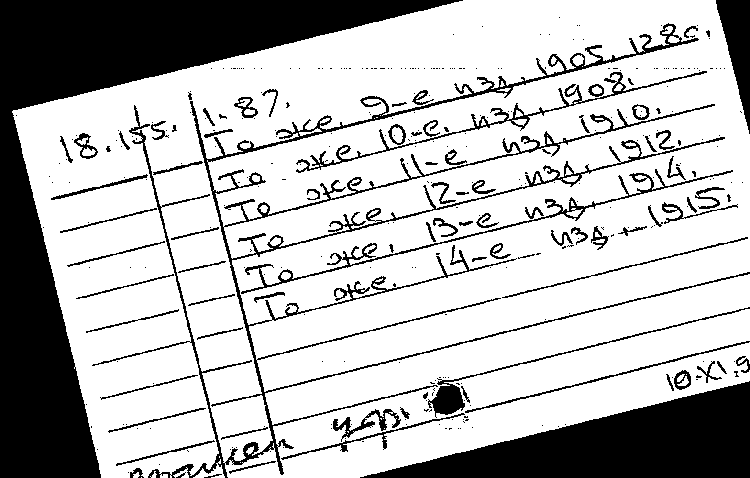 18.155. 1.87.
То же. 9-е изд. 1905. 128с.
То же. 10-е. изд. 1908.
То же. 11-е изд. 1910.
То же. 12-е изд. 1912.
То же. 13-е изд. 1914.
То же. 14-е изд. 1915.
10.XI.9